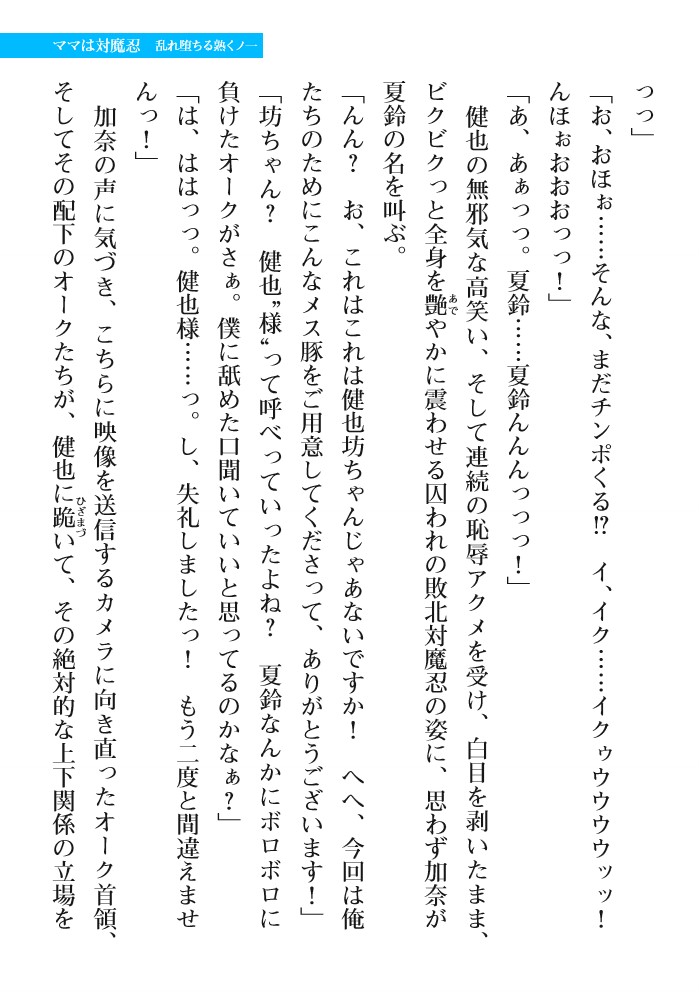 ママは対魔忍　乱れ堕ちる熟くノ一
っっ」
「お、おほぉ……そんな、まだチンポくる!?　イ、イク……イクゥウウウウッッ！
んほぉおおおっっ！」
「あ、あぁっっ。夏鈴……夏鈴んんんっっっ！」
　健也の無邪気な高笑い、そして連続の恥辱アクメを受け、白目を剥いたまま、
ビクビクっと全身を艶やかに震わせる囚われの敗北対魔忍の姿に、思わず加奈が
夏鈴の名を叫ぶ。
「んん？　お、これはこれは健也坊ちゃんじゃあないですか！　へへ、今回は俺
たちのためにこんなメス豚をご用意してくださって、ありがとうございます！」
「坊ちゃん？　健也〝様〟って呼べっていったよね？　夏鈴なんかにボロボロに
負けたオークがさぁ。僕に舐めた口聞いていいと思ってるのかなぁ？」
「は、ははっっ。健也様……っ。し、失礼しましたっ！　もう二度と間違えませ
んっ！」
　加奈の声に気づき、こちらに映像を送信するカメラに向き直ったオーク首領、
そしてその配下のオークたちが、健也に跪いて、その絶対的な上下関係の立場を